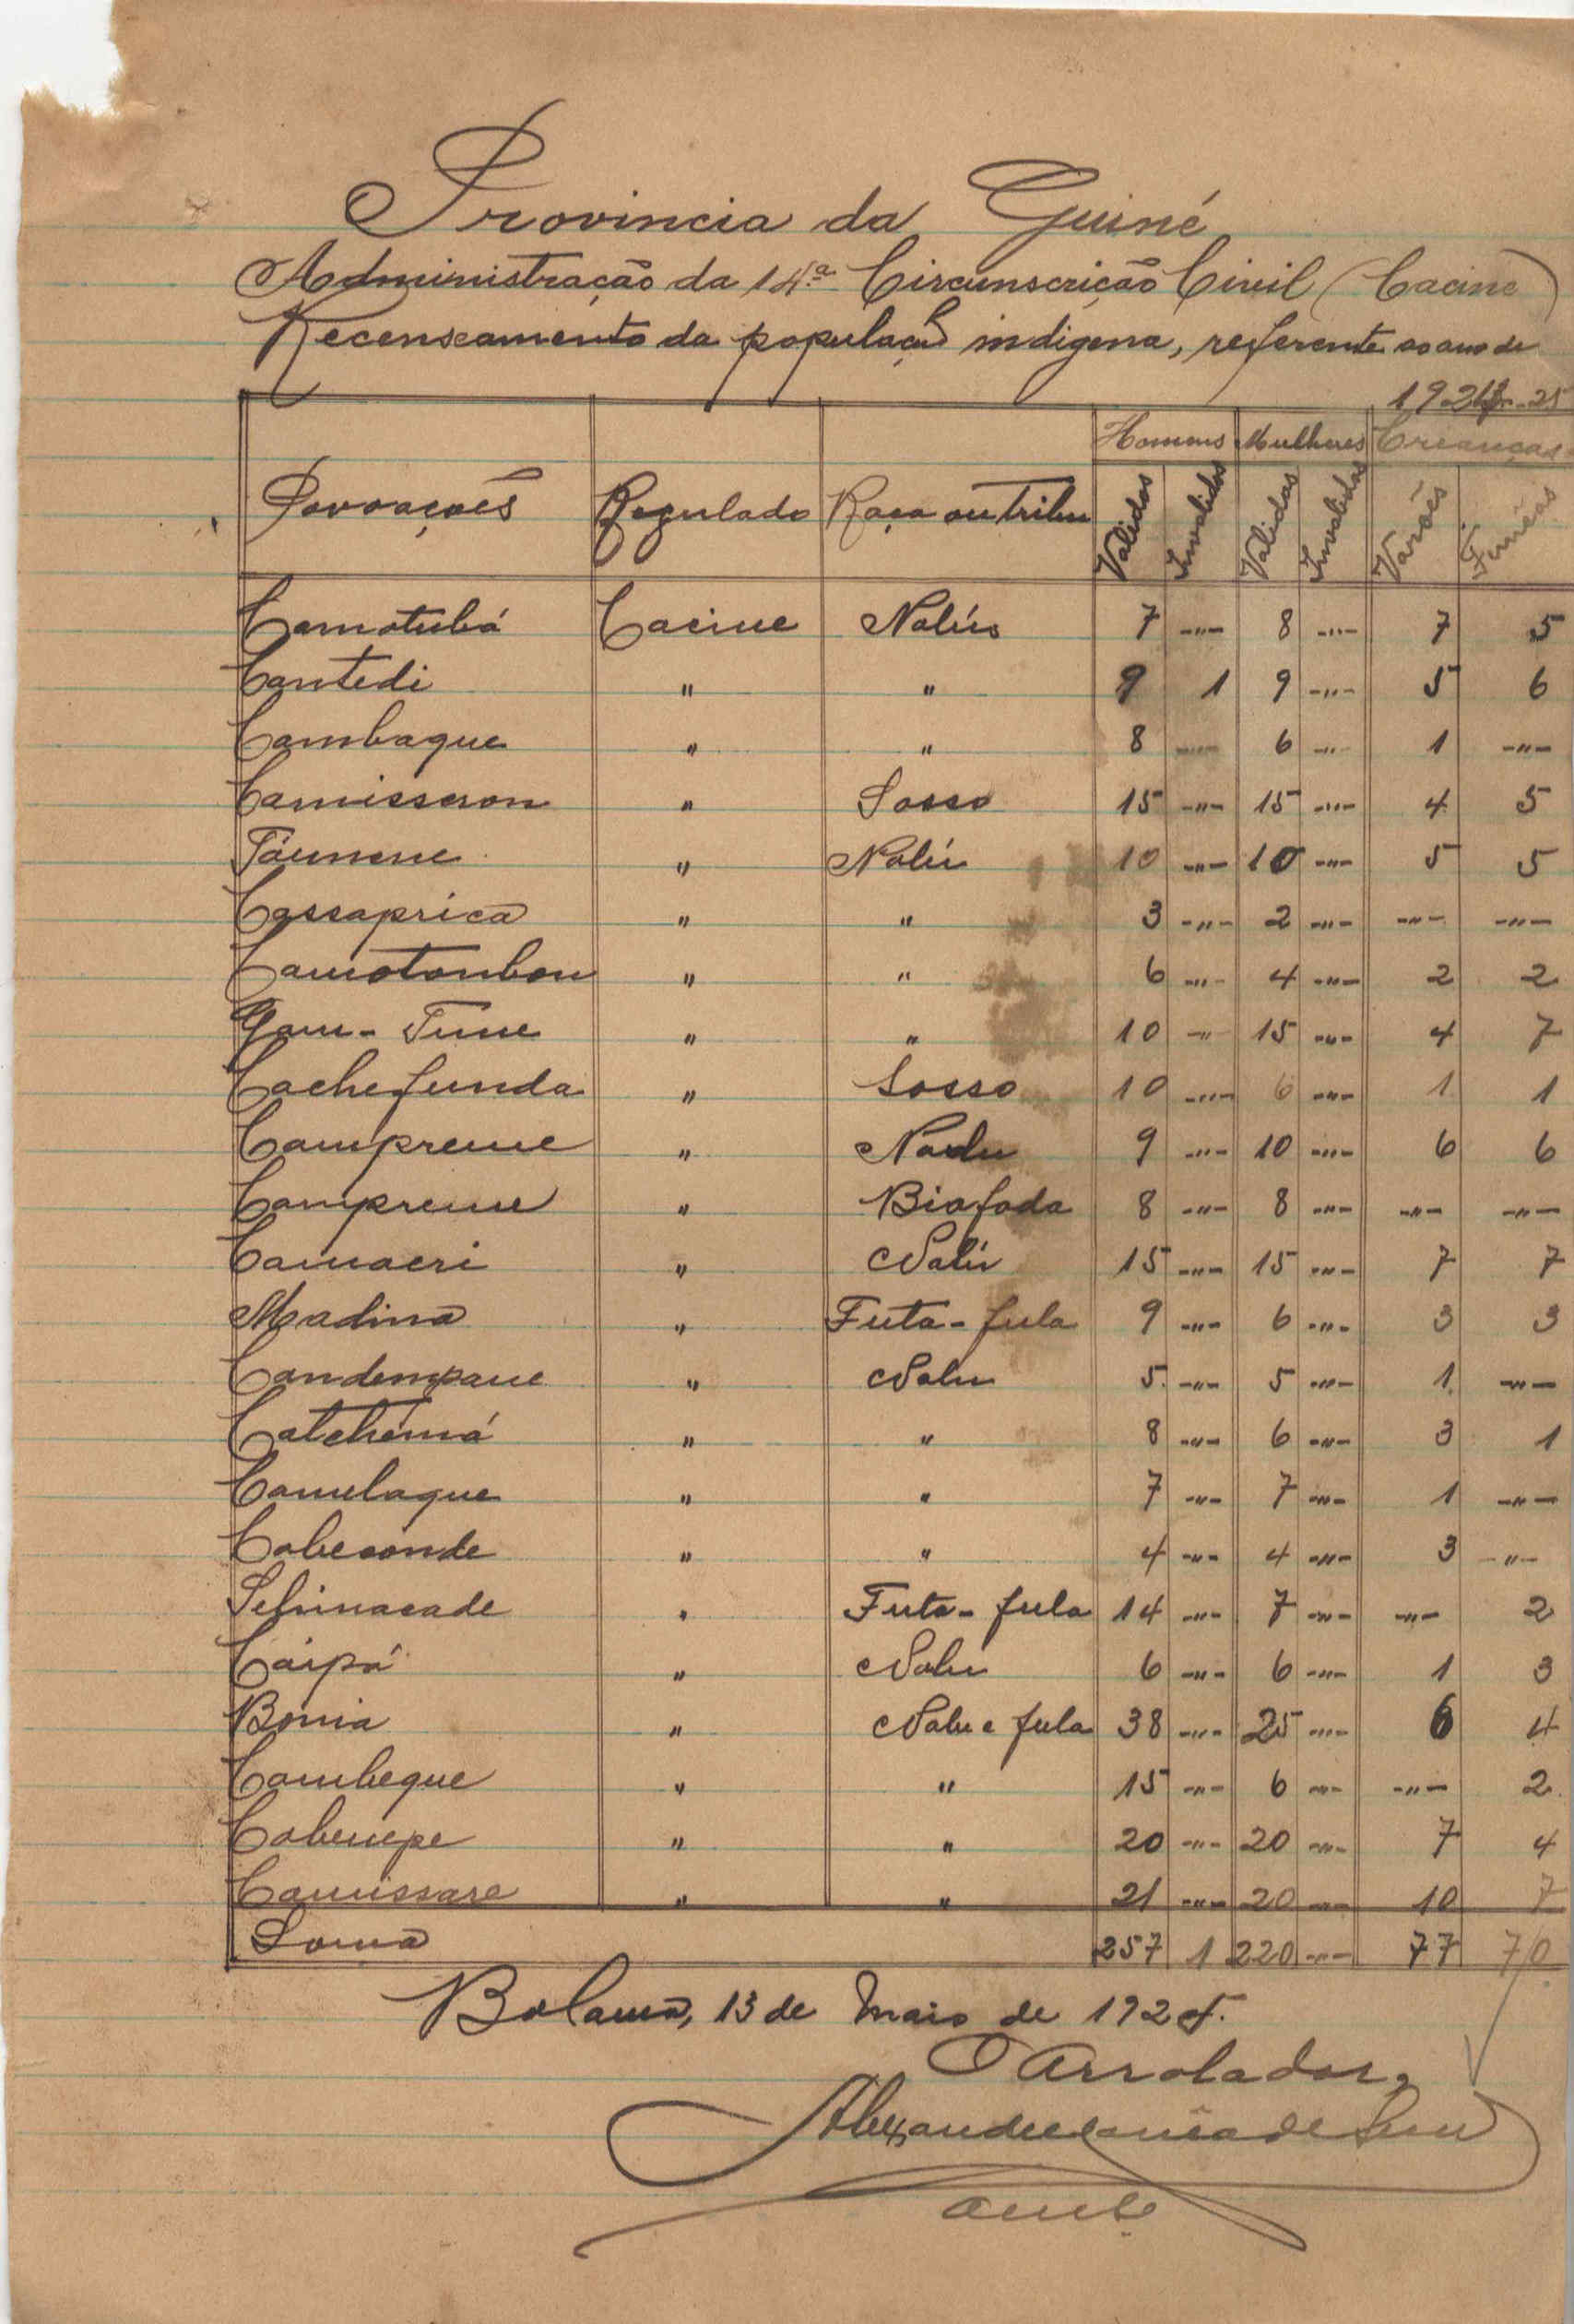 Provincia da Guiné
Administração da 14.ª Circunscrição Civil (Cacine)
Recenseamento da população indigena, referente ao ano de
25
Homens Mulheres Creanças
Povoações Regulado Raça ou Tribu Validos Invalidos Validas Invalidas Varões Fêmeas
Camotubá Cacine Nalús 7 -"- 8 -"- 7 5
Cantedi " " 9 1 9 -"- 5 6
Cambaque " " 8 -"- 6 -"- 1 -"-
Camisseron " Sosso 15 -"- 15 -"- 4 5
" Nalú 10 -"- 10 -"- 5 5
Cassaprica " " 3 -"- 2 -"- -"- -"-
Camotonbon " " 6 -"- 4 -"- 2 2
Gam-Tune " " 10 -"- 15 -"- 4 7
Cachefunda " Sosso 10 -"- 6 -"- 1 1
Campreme " Nalu 9 -"- 10 -"- 6 6
Campreme " Biafada 8 -"- 8 -"- -"- -"-
Camaeri " Nalú 15 -"- 15 -"- 7 7
Madina " Futa-fula 9 -"- 6 -"- 3 3
Candempane " Nalu 5 -"- 5 -"- 1 -"-
Catchemá " " 8 -"- 6 -"- 3 1
Camelaque " " 7 -"- 7 -"- 1 -"-
Cabesonde " " 4 -"- 4 -"- 3 -"-
" Futa-fula 14 -"- 7 -"- -"- 2
Caipá " Nalu 6 -"- 6 -"- 1 3
Bomia " Nalu e fula 38 -"- 25 -"- 6 4
Cambeque " " 15 -"- 6 -"- -"- 2
Cabenepe " " 20 -"- 20 -"- 7 4
Camissare " " 21 -"- 20 -"- 10 7
Soma 257 1 220 -"- 77 70
Bolama, 13 de Maio de
O Arrolador,
Alexandre de